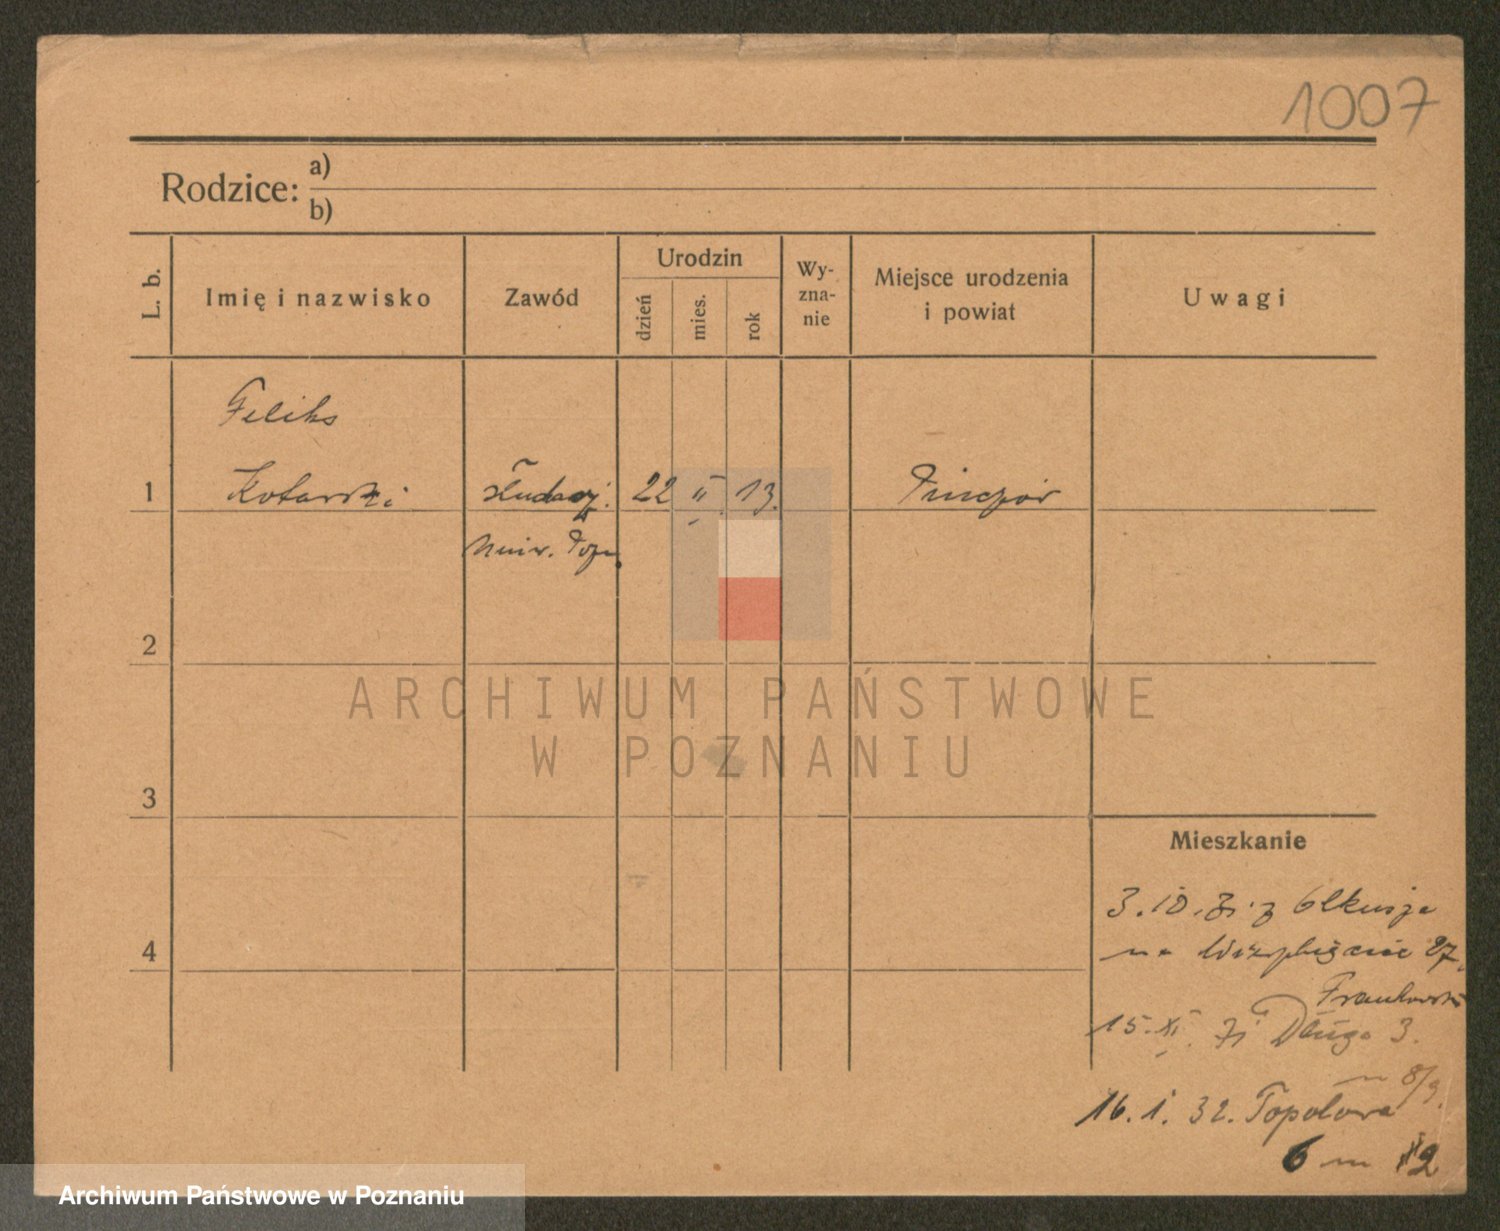 1007
Rodzice: a)
b)
L. b.
Imię i nazwisko
Zawód
Urodzin
dzień
mies.
rok
Wy-
zna-
nie
Miejsce urodzenia
i powiat
Uwagi
Feliks
1 Kotarski 22 II 13. Pinczów
Uniw. Pozn.
2
ARCHIWUM PAŃSTWOWE
W POZNANIU
3
Mieszkanie
3.10.31 z Olkusza
4
na 27,
15.XI. 31 Długa 3.
m 8/9.
16.1.32. Topolowa
6 m 12
Archiwum Państwowe w Poznaniu